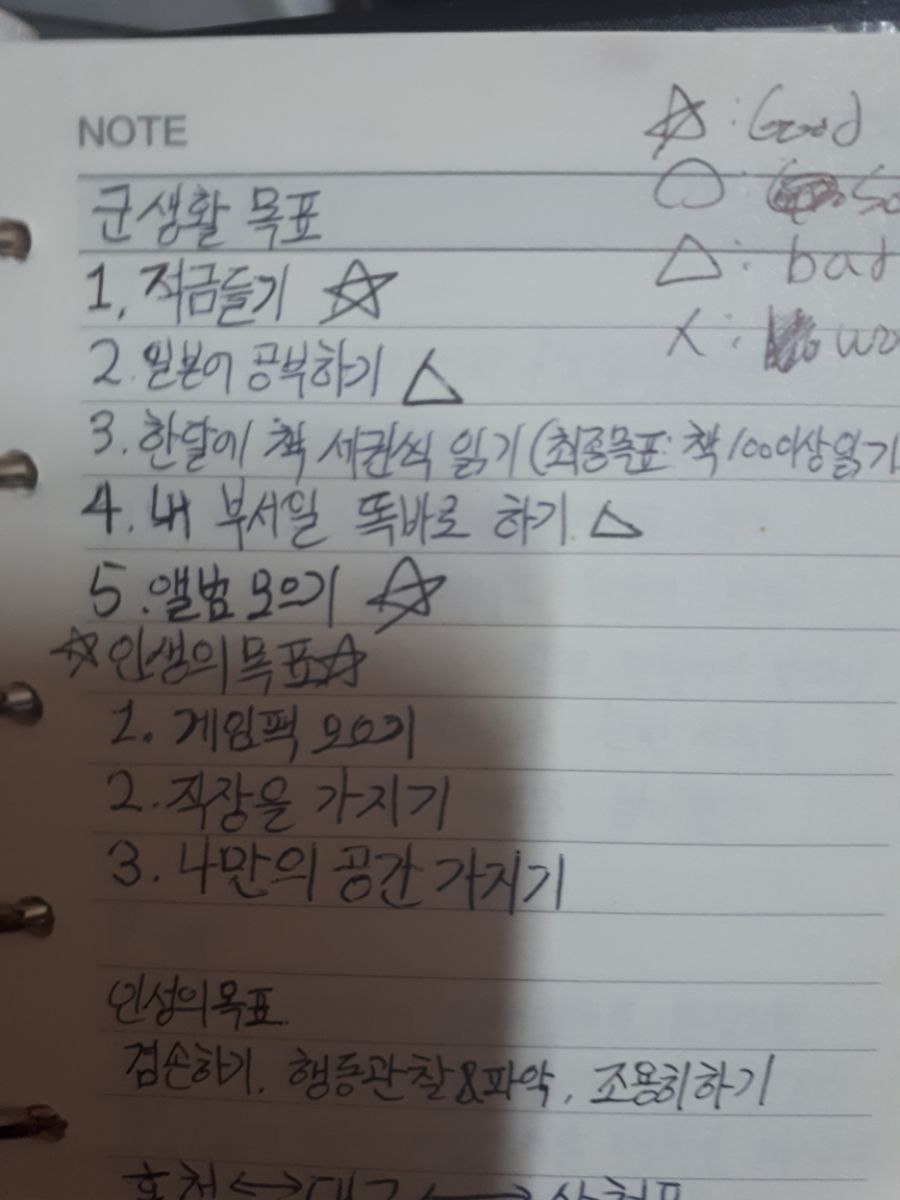 NOTE
☆: Good
○: So
△: bad
X: wo
군생활 목표
1. 적금들기 ☆
2. 일본어 공부하기 △
3. 한달에 책 세권씩 읽기 (최종목표: 책 100이상 읽기
4. 내 부서일 똑바로 하기. △
5. 앨범 모으기 ☆
☆인생의 목표☆
1. 게임팩 모으기
2. 직장을 가지기
3. 나만의 공간 가지기
인성의 목표.
겸손하기, 행동관찰&파악, 조용히하기